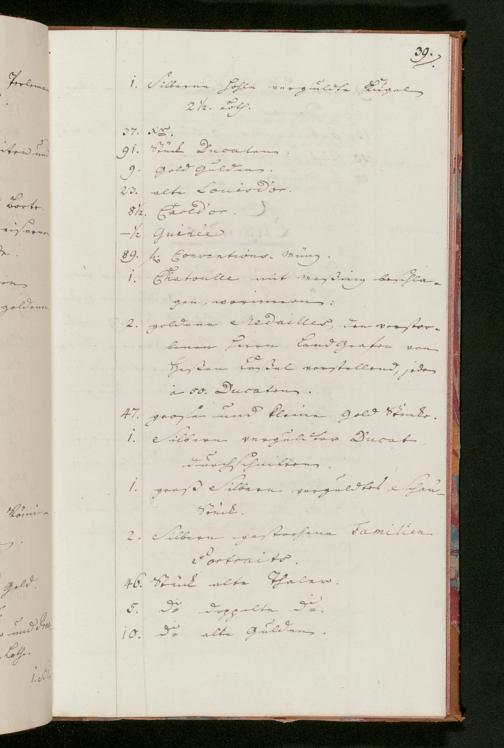 39.
1. Silberne hohle verguldte Kugel
2½. Loth.
37.
91. Stück Ducaten.
9. Gold Gulden.
23. alte Louisd'or.
8½. Carld'or.
–½ Guinée
89. Conventions-Münz.
1. Chatoulle mit Messing beschla-
gen, worinnen:
2. goldene Medailles, den verstor-
benen Herrn LandGrafen von
Heßen Caßel vorstellend, jede
à 50. Ducaten.
47. große und kleine Gold Stücke.
1. Silbern verguldter Ducat
durchschnitten.
1. groß Silbern verguldtes Schau-
Stück.
2. Silbern gestochene Familien
Portraits.
46. Stück alte Thaler.
5. do doppelte do.
10. do alte Gulden.
Gold
und
Loth.